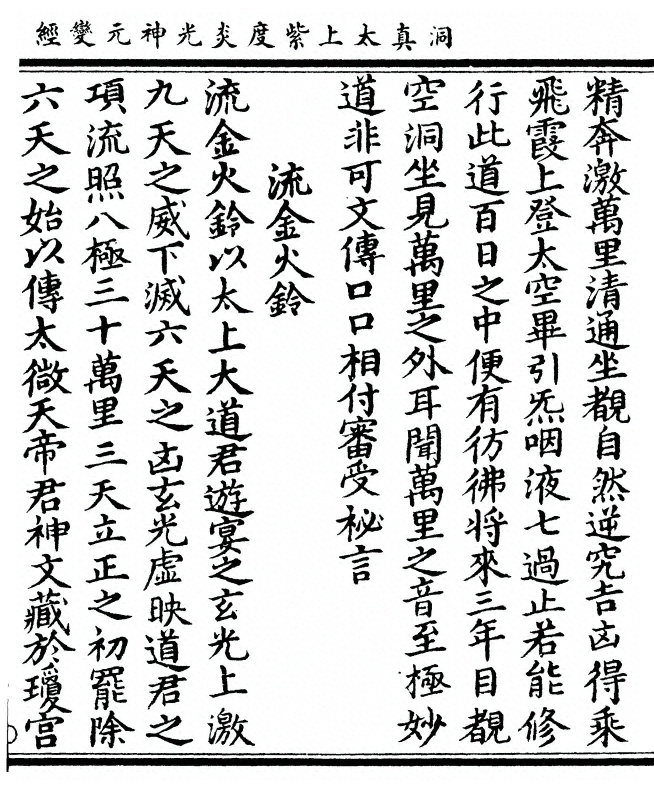 洞真太上紫度炎光神元變經
精奔激萬里清通坐覩自然逆究吉凶得乘
飛霞上登太空畢引炁咽液七過止若能修
行此道百日之中便有彷彿將來三年目覩
空洞坐見萬里之外耳聞萬里之音至極妙
道非可文傳口口相付審受秘言
流金火鈴
流金火鈴以太上大道君遊宴之玄光上激
九天之威下滅六天之凶玄光虛映道君之
項流照八極三十萬里三天立正之初罷除
六天之始以傳太微天帝君神文藏於瓊宮